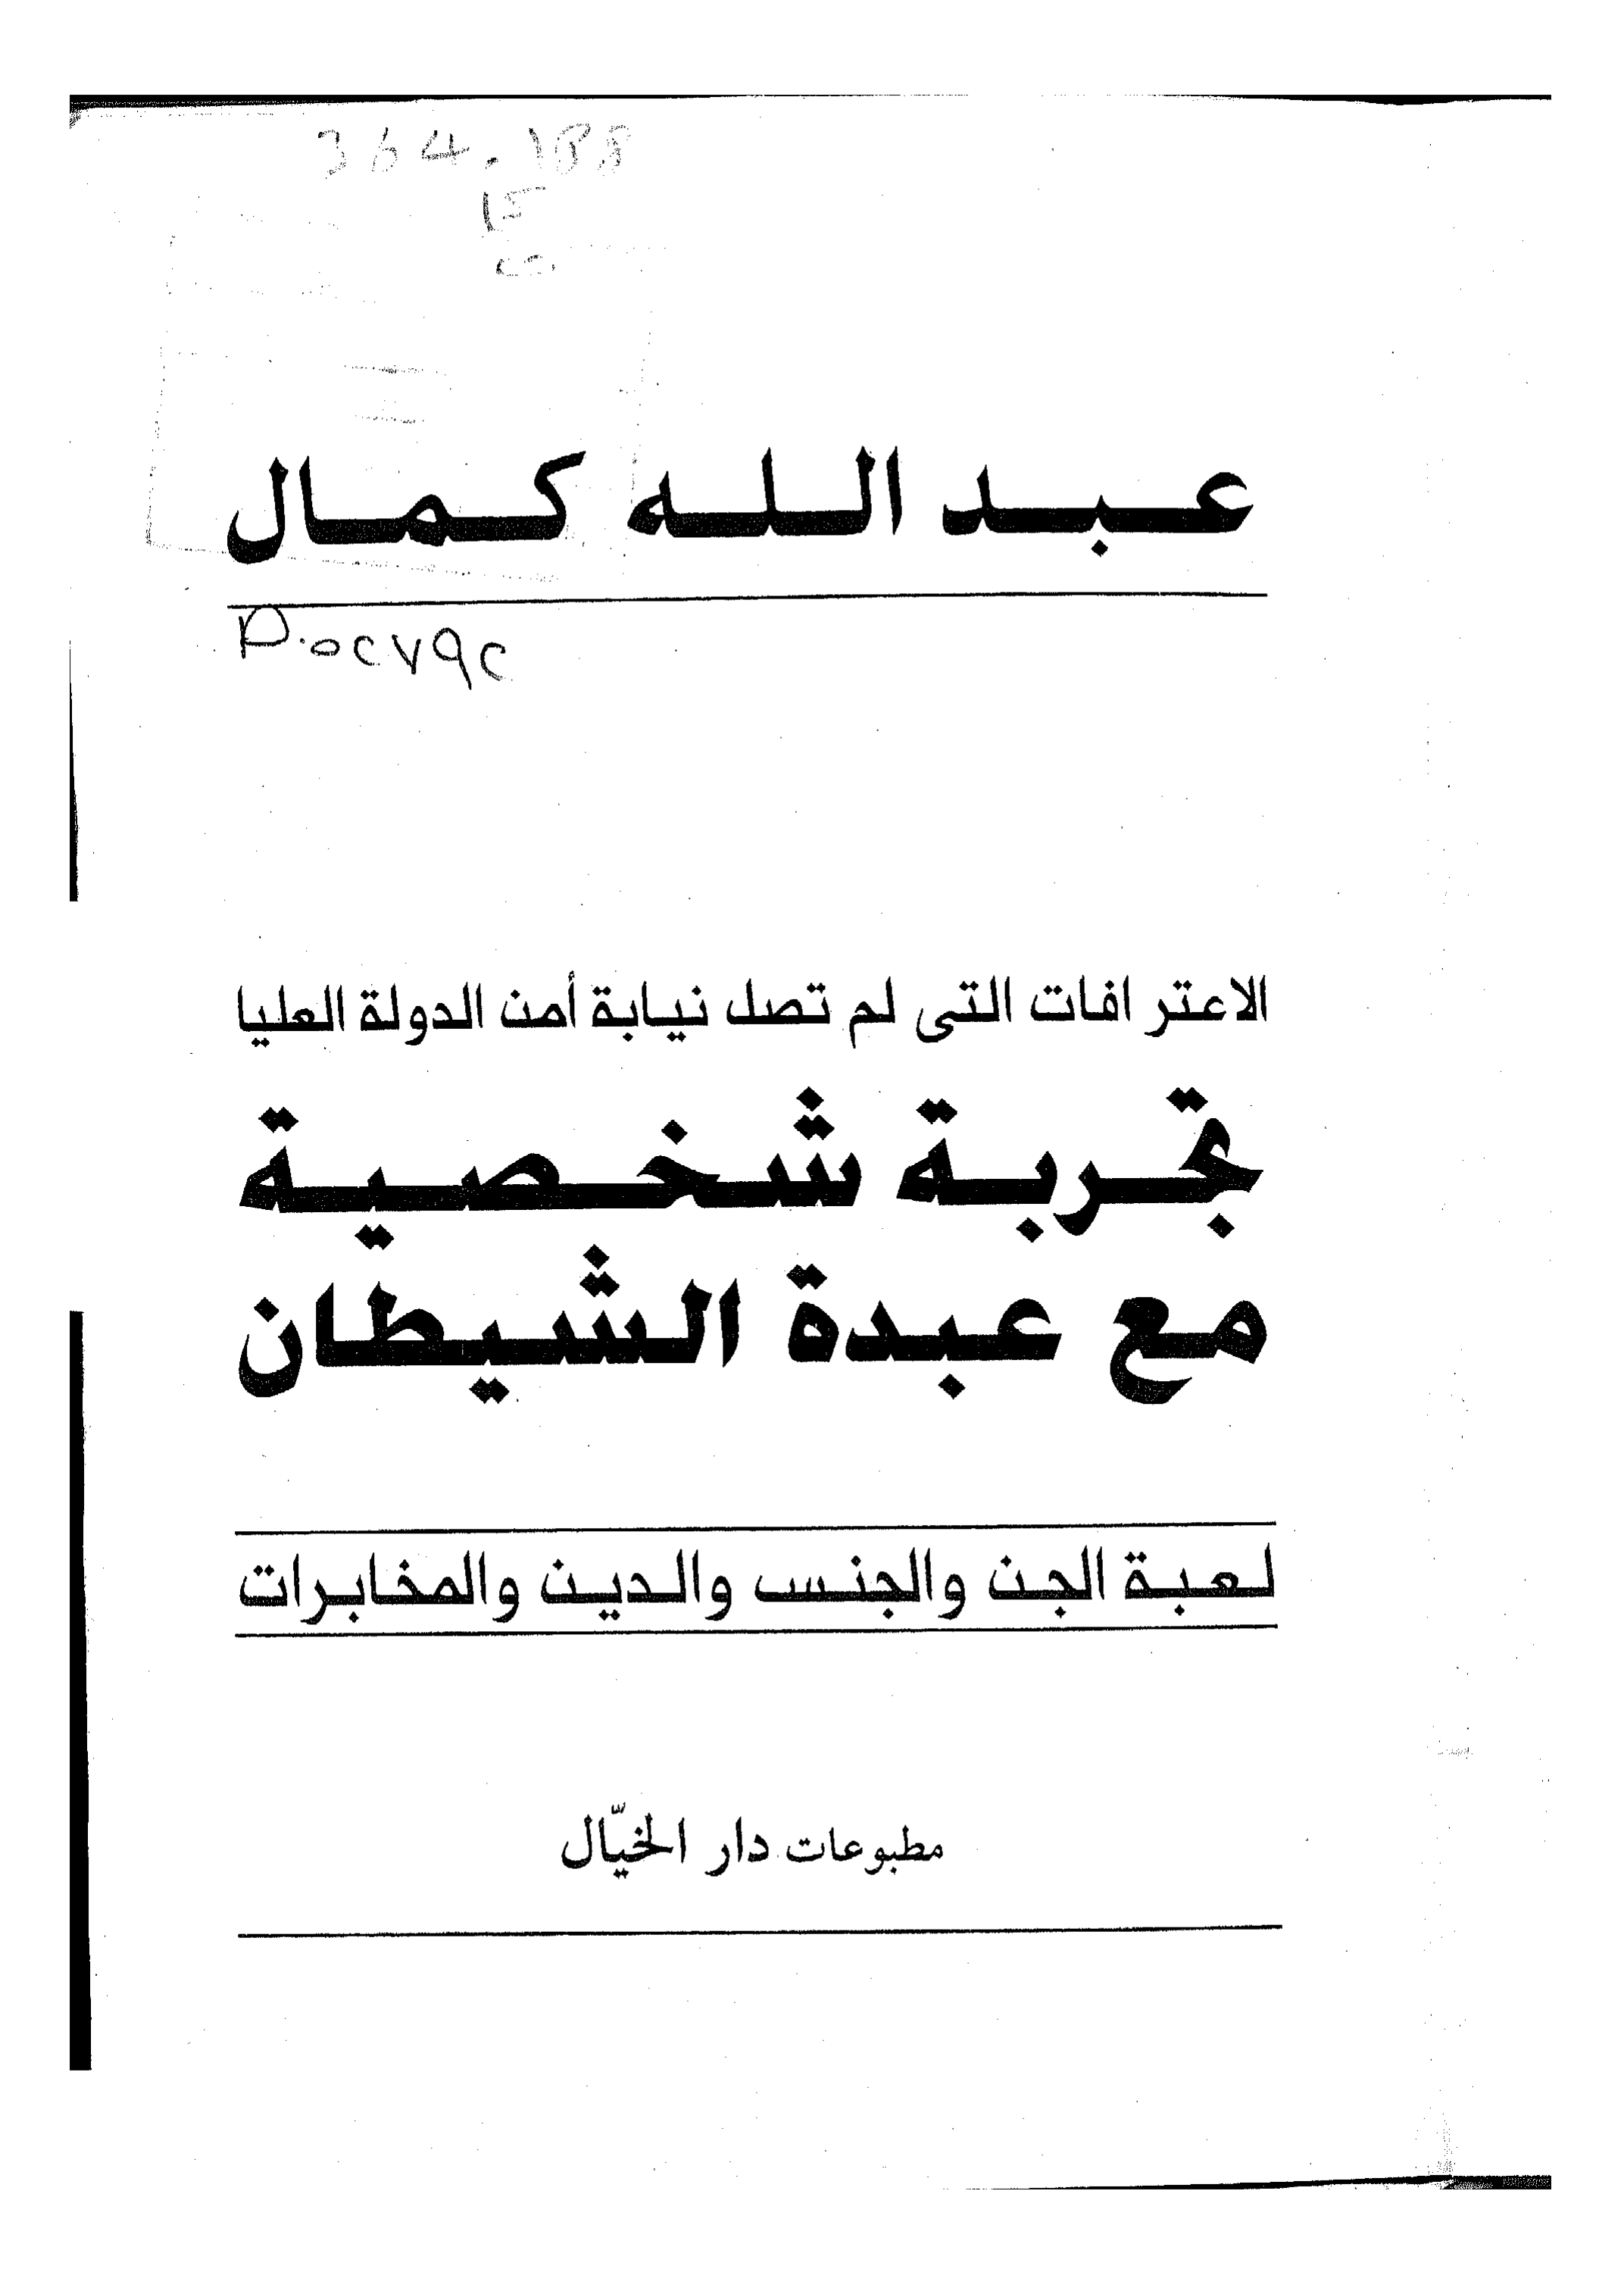 364.188
عبد الله كمال
الاعترافات التى لم تصل نيابة أمن الدولة العليا
تجربة شخصية
مع عبدة الشيطان
لعبة الجن والجنس والدين والمخابرات
مطبوعات دار الخيّال